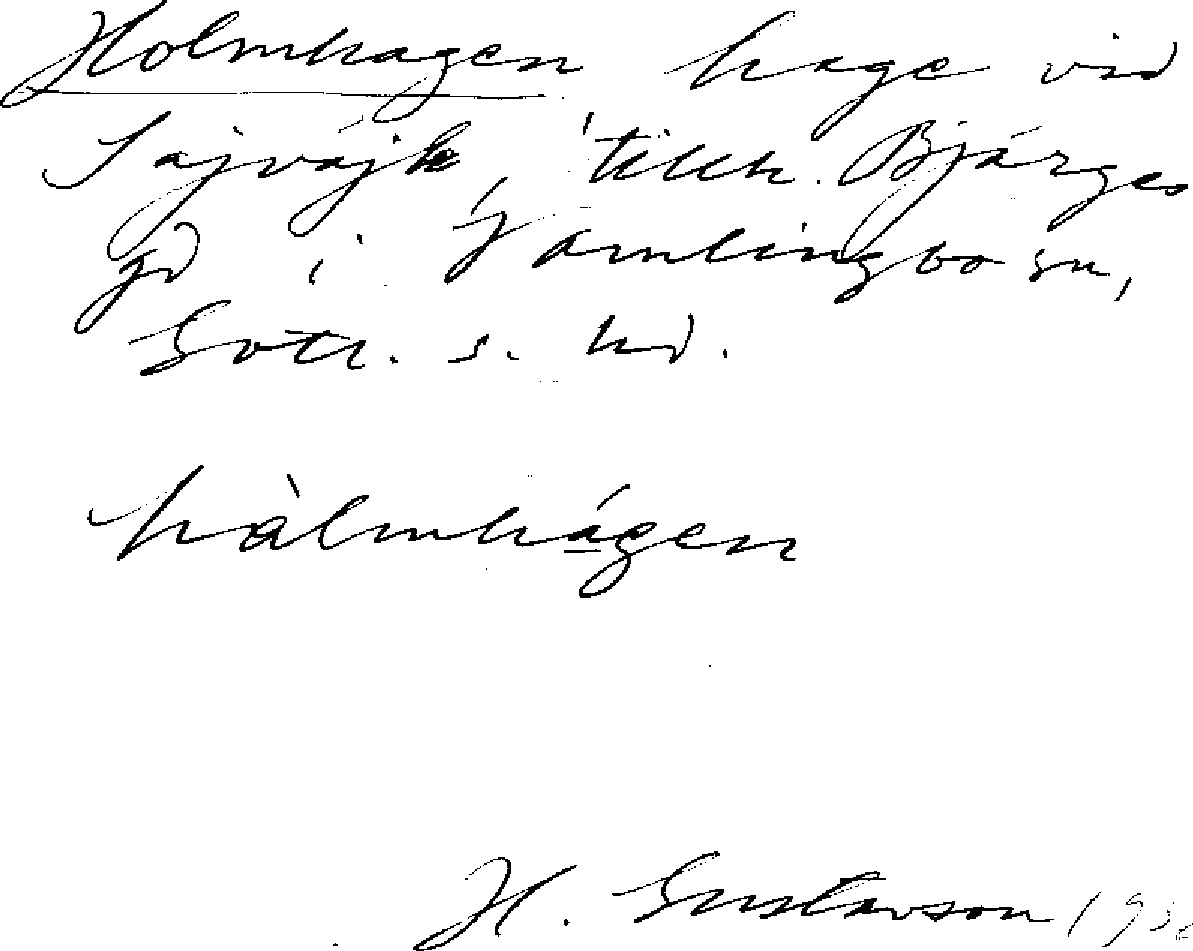 Holmhagen hage vid
Sajvájk, tillh. Bjärges
gd i Vamlingbo sn,
Gotl. s. hd.
hàlmhágen
H. Gustavson